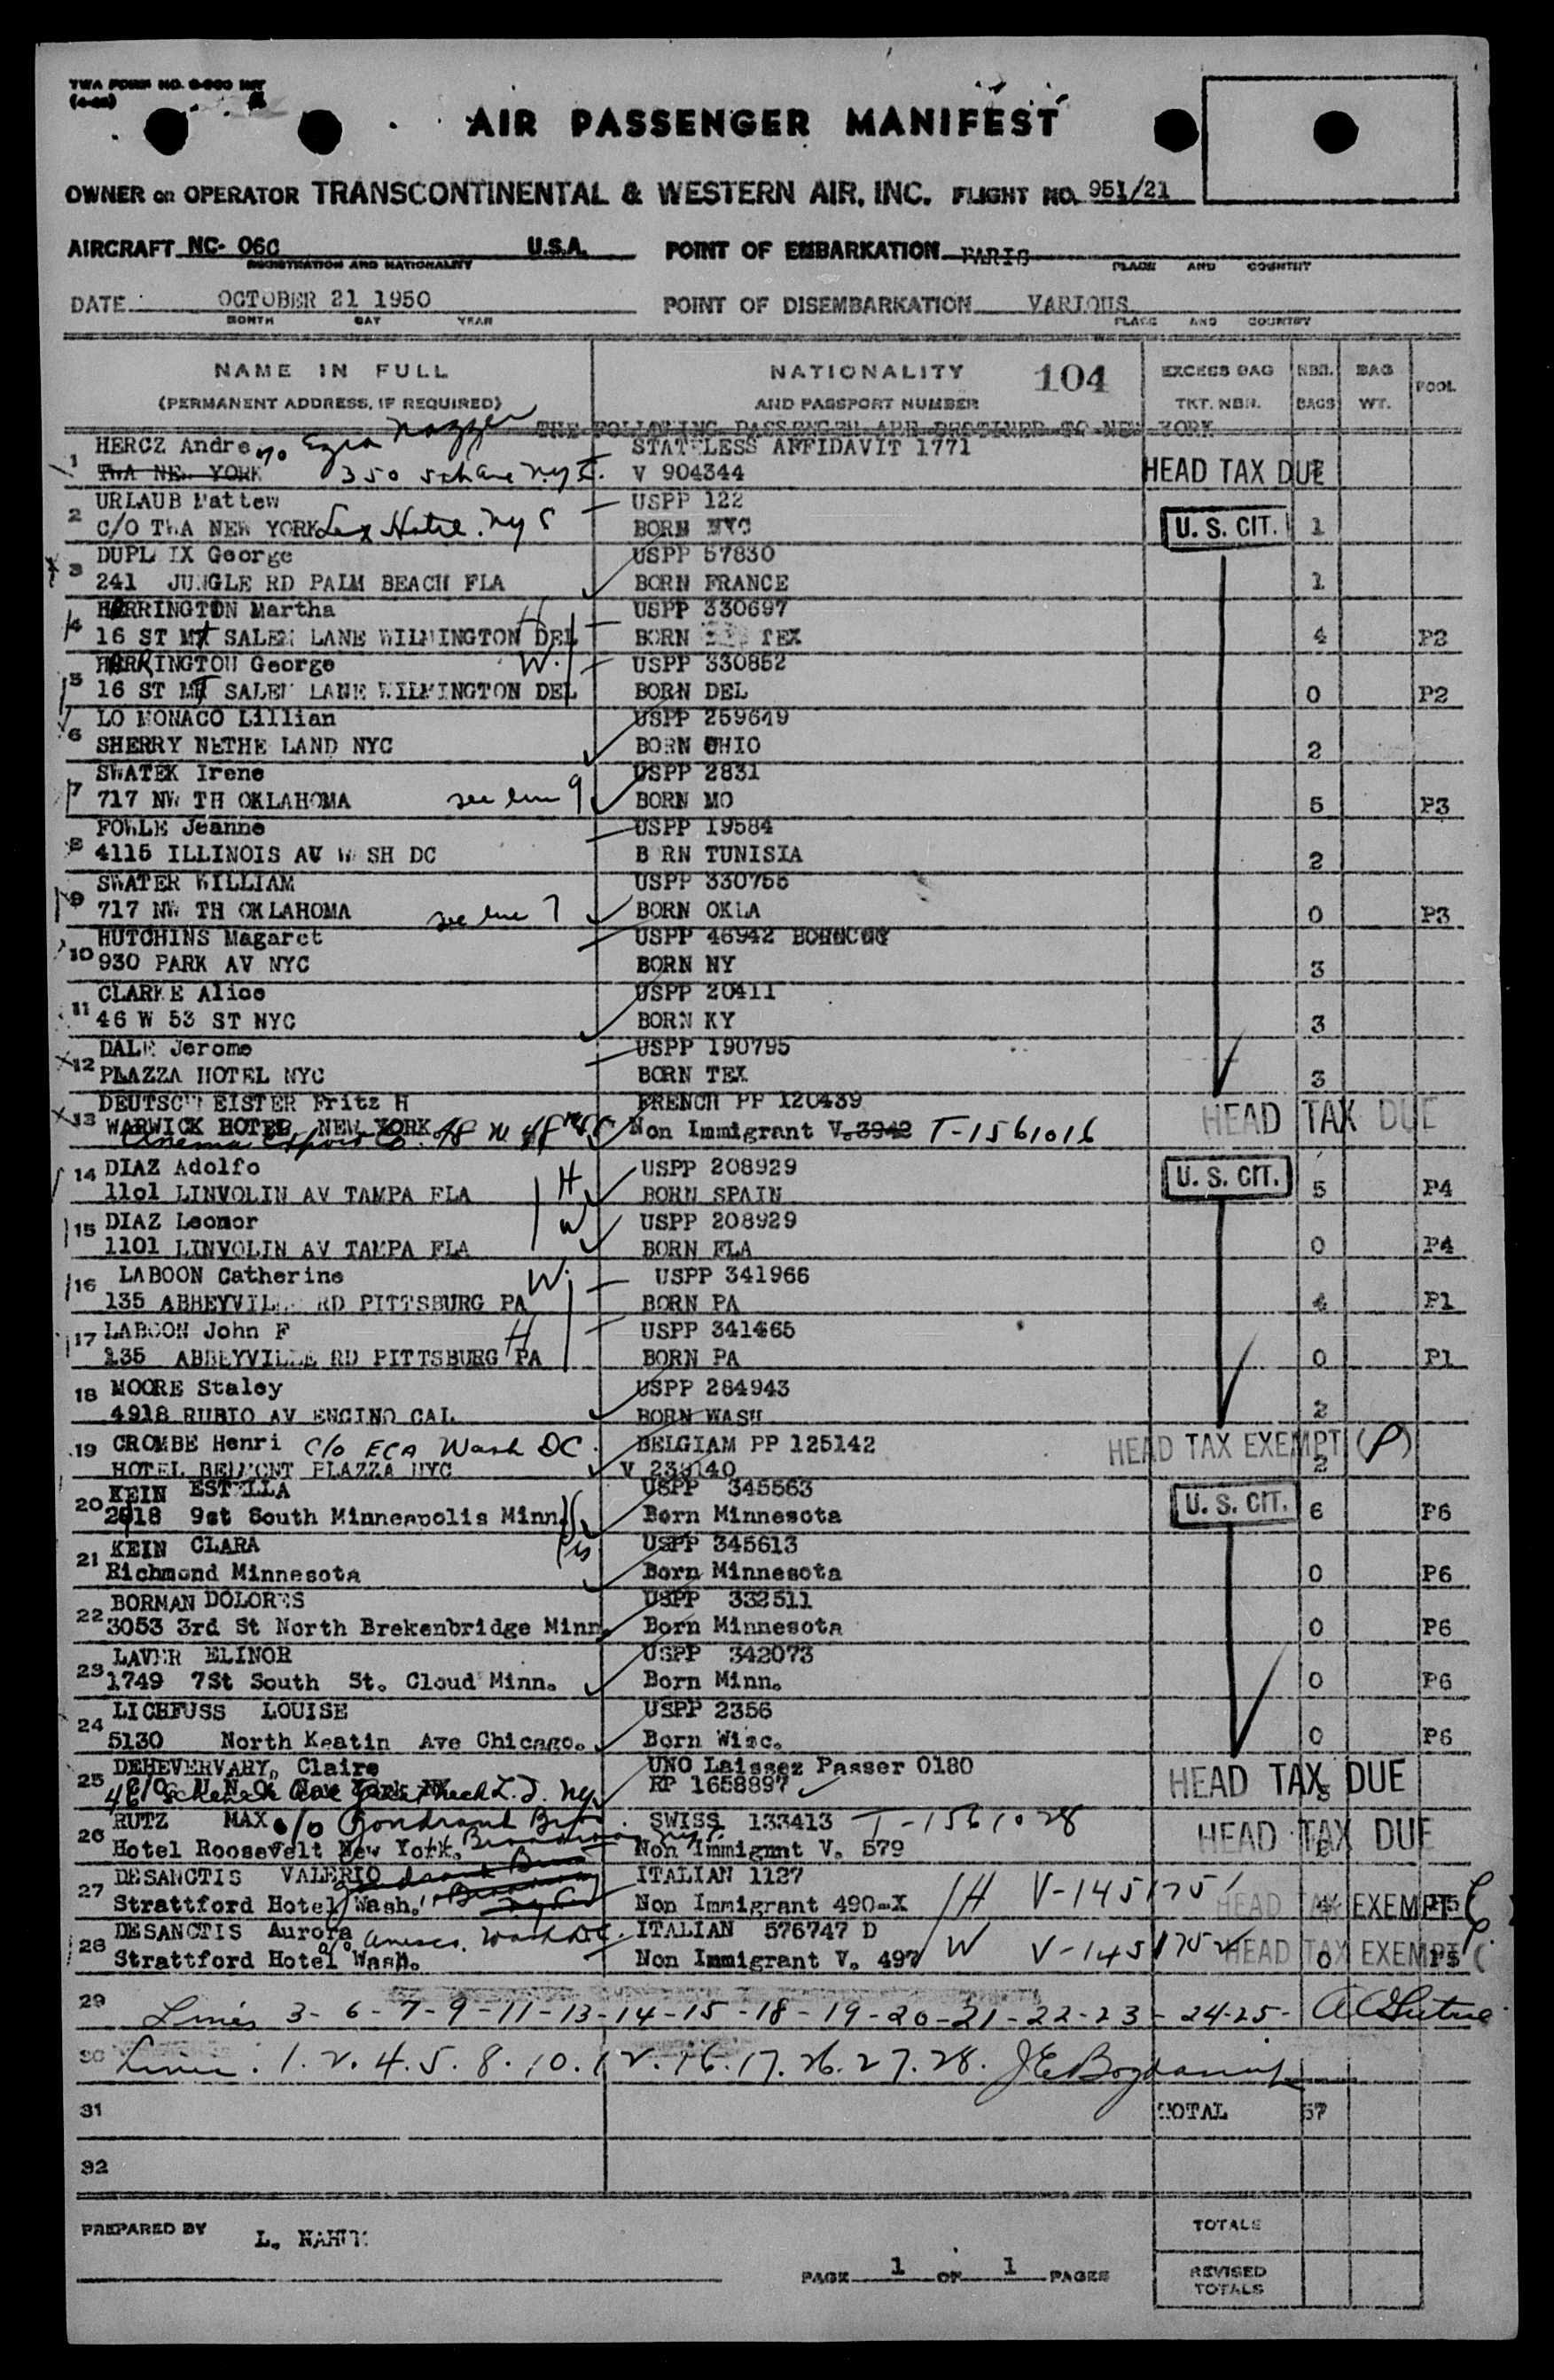 TWA FORM NO.
AIR PASSENGER MANIFEST
OWNER OR OPERATOR TRANSCONTINENTAL & WESTERN AIR, INC. FLIGHT NO. 951/21
AIRCRAFT NC- 06C U.S.A. POINT OF EMBARKATION PARIS
REGISTRATION AND NATIONALITY PLACE AND COUNTRY
DATE OCTOBER 21 1950 POINT OF DISEMBARKATION VARIOUS
MONTH DAY YEAR PLACE AND COUNTRY
NAME IN FULL NATIONALITY 104 EXCESS BAG NBR. BAG POOL
(PERMANENT ADDRESS, IF REQUIRED) AND PASSPORT NUMBER TKT. NBR. BAGS WT.
THE FOLLOWING PASSENGER ARE DESTINED TO NEW YORK
1 HERCZ Andre STATELESS AFFIDAVIT 1771
TWA NEW YORK 350 V 904344 HEAD TAX DUE
2 URLAUB Mattew USPP 122
C/O TWA NEW YORK Lex Hotel. NYC BORN NYC U. S. CIT. 1
3 DUPL IX George USPP 57830
241 JUNGLE RD PALM BEACH FLA BORN FRANCE 1
4 HARRINGTON Martha H USPP 330697
16 ST MT SALEM LANE WILMINGTON DEL BORN TEX 4 P2
5 HARRINGTON George W. USPP 330852
16 ST MT SALEM LANE WILMINGTON DEL BORN DEL 0 P2
6 LO MONACO Lillian USPP 259649
SHERRY NETHE LAND NYC BORN OHIO 2
7 SWATEK Irene USPP 2831
717 NW TH OKLAHOMA see line 9 BORN MO 5 P3
8 FOWLE Jeanne USPP 19584
4115 ILLINOIS AV W SH DC B RN TUNISIA 2
9 SWATER WILLIAM USPP 330755
717 NW TH OKLAHOMA see line 7 BORN OKLA 0 P3
10 HUTCHINS Magaret USPP 46942
930 PARK AV NYC BORN NY 3
11 CLARKE Alice USPP 20411
46 W 53 ST NYC BORN KY 3
12 DALE Jerome USPP 190795
PLAZZA HOTEL NYC BORN TEX 3
13 DEUTSCHMEISTER Fritz H FRENCH PP 120439 HEAD TAX DUE
WARWICK HOTEL NEW YORK Non Immigrant V. 3942 T-1561016
14 DIAZ Adolfo H USPP 208929 U. S. CIT.
1101 LINVOLIN AV TAMPA FLA BORN SPAIN 5 P4
15 DIAZ Leonor W USPP 208929
1101 LINVOLIN AV TAMPA FLA BORN FLA 0 P4
16 LABOON Catherine W. USPP 341966
135 ABBEYVILLE RD PITTSBURG PA BORN PA 4 P1
17 LABOON John F H USPP 341465
135 ABBEYVILLE RD PITTSBURG PA BORN PA 0 P1
18 MOORE Staley USPP 284943
4918 RUBIO AV ENCINO CAL BORN WASH 2
19 CROMBE Henri C/o ECA Wash DC. BELGIAM PP 125142 HEAD TAX EXEMPT (P)
HOTEL BELMONT PLAZZA NYC V 239140 2
20 KEIN ESTELLA USPP 345563 U. S. CIT.
2918 9st South Minneapolis Minn. Born Minnesota 6 P6
21 KEIN CLARA USPP 345613
Richmond Minnesota Born Minnesota 0 P6
22 BORMAN DOLORES USPP 332511
3053 3rd St North Brekenbridge Minn. Born Minnesota 0 P6
23 LAVER ELINOR USPP 342073
1749 7St South St. Cloud Minn. Born Minn. 0 P6
24 LICHFUSS LOUISE USPP 2356
5130 North Keatin Ave Chicago. Born Wisc. 0 P6
25 DEHEVERVARY, Claire UNO Laissez Passer 0180
RP 1658897 HEAD TAX DUE
26 RUTZ MAX c/o Gondrand Bros. SWISS 133413 T-1561028
Hotel Roosevelt New York. Broadway Non Immigrnt V. 579 HEAD TAX DUE
27 DESANCTIS VALERIO ITALIAN 1127
Strattford Hotel Wash. Non Immigrant 490-X H V-145175 HEAD TAX EXEMPT
28 DESANCTIS Aurora Wash DC. ITALIAN 576747 D
Strattford Hotel Wash. Non Immigrant V. 497 W V-145175 HEAD TAX EXEMPT 0
29 Lines 3-6-7-9-11-13-14-15-18-19-20-21-22-23-24-25-
30 Lines. 1. 2. 4. 5. 8. 10. 12. 16. 17. 26. 27. 28.
31 TOTAL 57
32
PREPARED BY L. TOTALS
PAGE 1 OF 1 PAGES REVISED
TOTALS